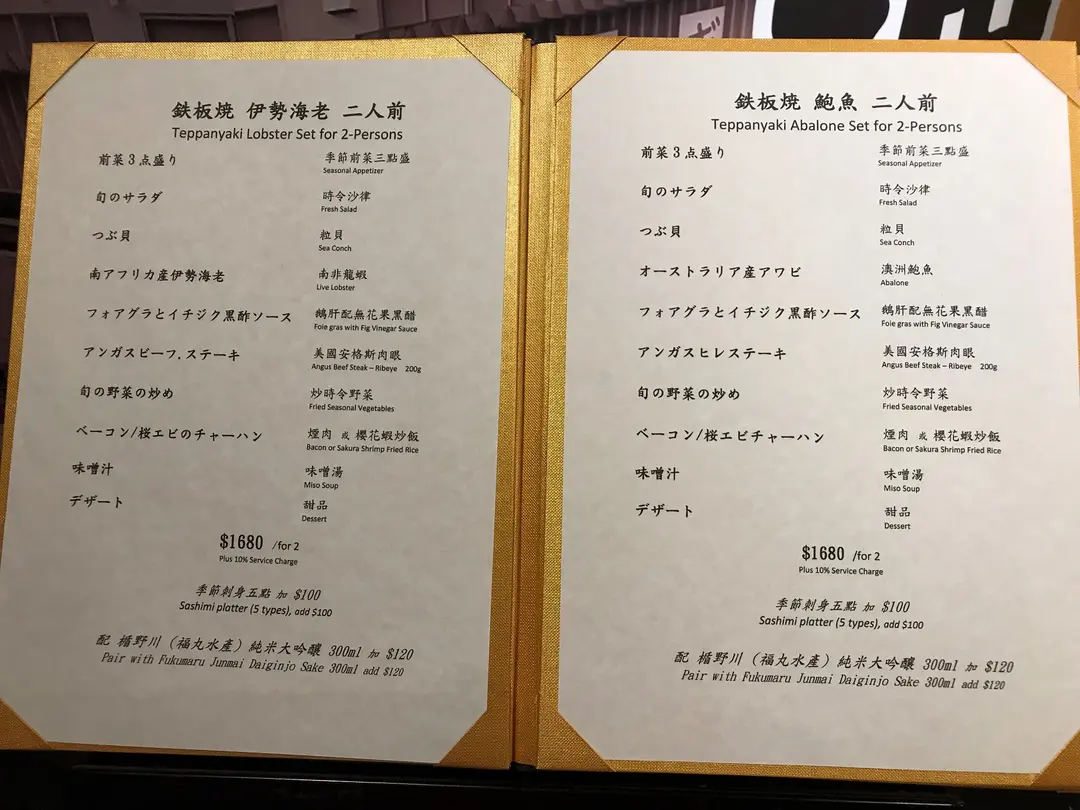 鉄板焼 伊勢海老 二人前
Teppanyaki Lobster Set for 2-Persons
前菜3点盛り
季節前菜三點盛
Seasonal Appetizer
旬のサラダ
時令沙律
Fresh Salad
つぶ貝
粒貝
Sea Conch
南アフリカ産伊勢海老
南非龍蝦
Live Lobster
フォアグラとイチジク黒酢ソース
鵝肝配無花果黑醋
Foie gras with Fig Vinegar Sauce
アンガスビーフ.ステーキ
美國安格斯肉眼
Angus Beef Steak – Ribeye 200g
旬の野菜の炒め
炒時令野菜
Fried Seasonal Vegetables
ベーコン/桜エビのチャーハン
煙肉 或 櫻花蝦炒飯
Bacon or Sakura Shrimp Fried Rice
味噌汁
味噌湯
Miso Soup
デザート
甜品
Dessert
$1680 /for 2
Plus 10% Service Charge
季節刺身五點 加 $100
Sashimi platter (5 types), add $100
配 楯野川 (福丸水產) 純米大吟釀 300ml 加 $120
Pair with Fukumaru Junmai Daiginjo Sake 300ml add $120
鉄板焼 鮑魚 二人前
Teppanyaki Abalone Set for 2-Persons
前菜3点盛り
季節前菜三點盛
Seasonal Appetizer
旬のサラダ
時令沙律
Fresh Salad
つぶ貝
粒貝
Sea Conch
オーストラリア産アワビ
澳洲鮑魚
Abalone
フォアグラとイチジク黒酢ソース
鵝肝配無花果黑醋
Foie gras with Fig Vinegar Sauce
アンガスヒレステーキ
美國安格斯肉眼
Angus Beef Steak – Ribeye 200g
旬の野菜の炒め
炒時令野菜
Fried Seasonal Vegetables
ベーコン/桜エビチャーハン
煙肉 或 櫻花蝦炒飯
Bacon or Sakura Shrimp Fried Rice
味噌汁
味噌湯
Miso Soup
デザート
甜品
Dessert
$1680 /for 2
Plus 10% Service Charge
季節刺身五點 加 $100
Sashimi platter (5 types), add $100
配 楯野川 (福丸水產) 純米大吟釀 300ml 加 $120
Pair with Fukumaru Junmai Daiginjo Sake 300ml add $120